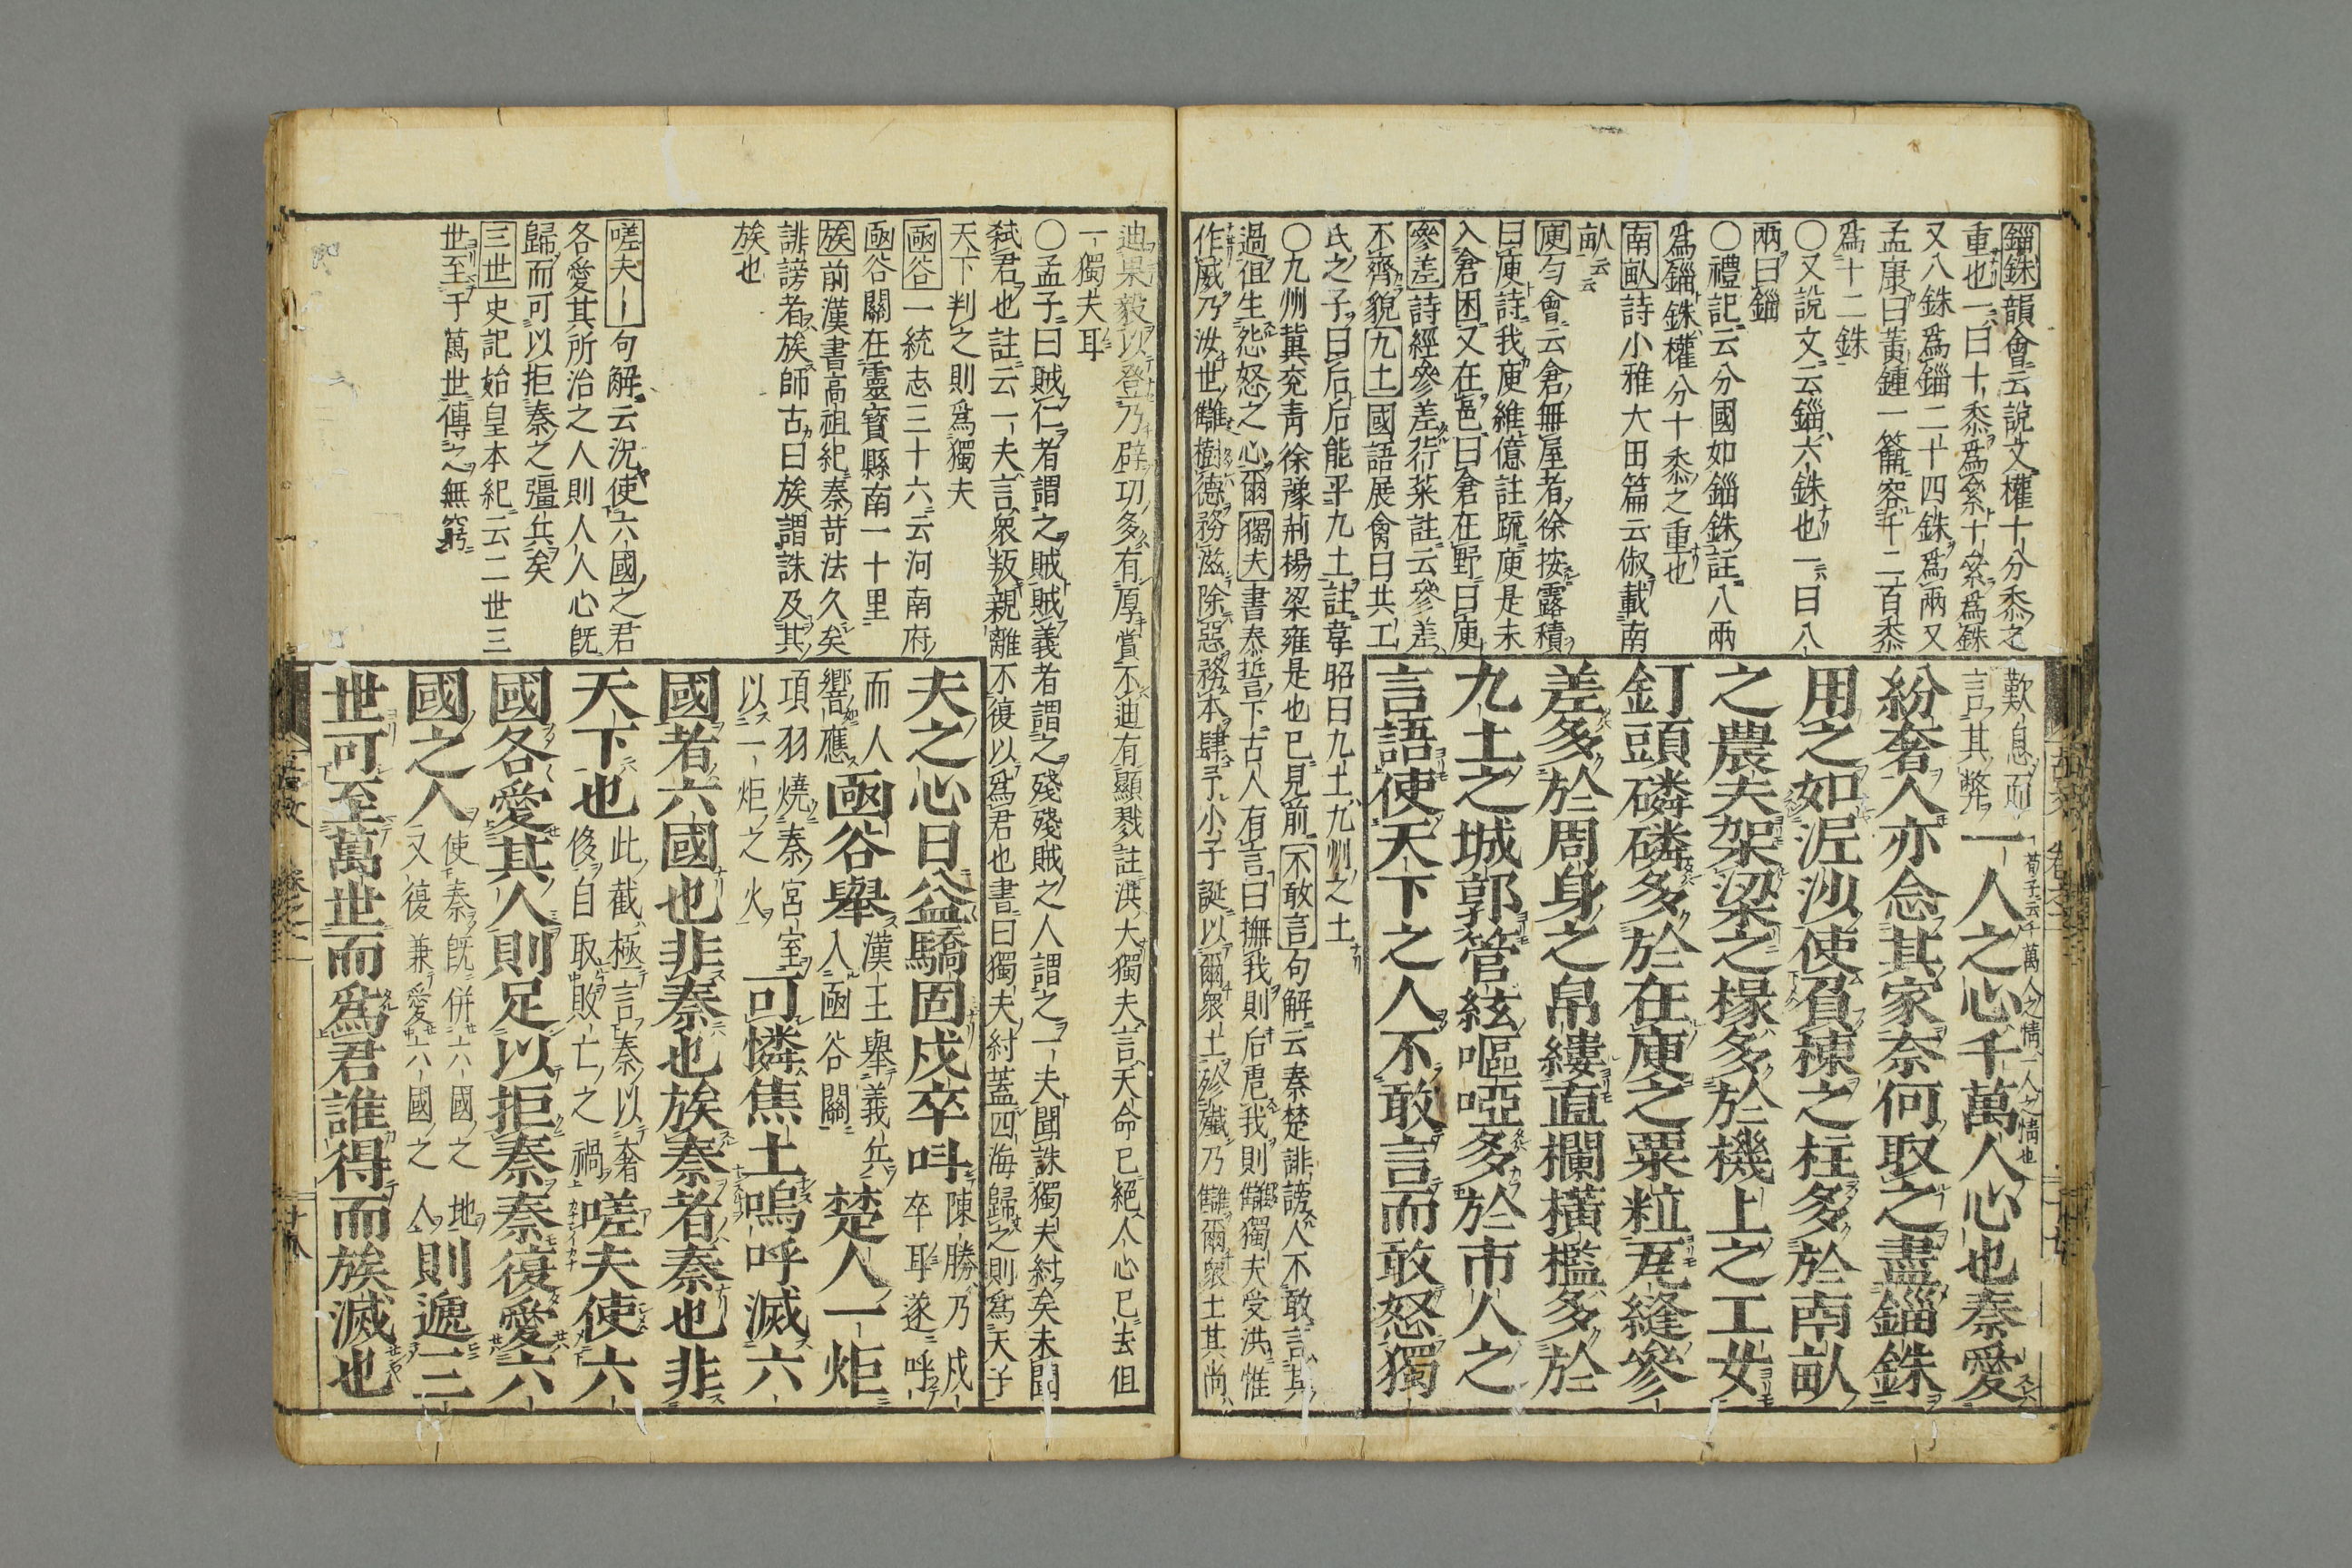 錙銖韻會云說文權十分黍之
重也一曰十黍爲絫十絫爲銖
又八銖爲錙二十四銖爲兩又
孟康曰黃鍾一籥容千二百黍
爲十二銖
〇又說文云錙六銖也一曰八
兩曰錙
〇禮記云分國如錙銖註八兩
爲錙銖權分十黍之重也
南畝詩小雅大田篇云俶載南
畝云云
庾勻會云倉無屋者徐按露積
曰庾詩我庾維億註疏庾是未
入倉囷又在邑曰倉在野曰庾
參差詩經參差荇菜註云參差
不齊貌九土國語展禽曰共工
氏之子曰后后能平九土註韋昭曰九土九州之土
〇九州冀兗青徐豫荊楊梁雍是也已見前不敢言句解云秦楚誹謗人不敢言其
過徂生怨怒之心爾獨夫書泰誓下古人有言曰撫我則后虐我則讎獨夫受洪惟
作威乃汝世讎樹德務滋除惡務本肆予小子誕以爾衆士殄殲乃讎爾衆士其尚
歎息而
言其弊
一人之心千萬人心也秦愛
荀子云千萬人之情一人之情也
紛奢人亦念其家奈何取之盡錙銖
用之如泥沙使負棟之柱多於南畝
之農夫架梁之椽多於機上之工女
釘頭磷磷多於在庾之粟粒瓦縫參
差多於周身之帛縷直欄橫檻多於
九土之城郭管絃嘔啞多於市人之
言語使天下之人不敢言而敢怒獨
迪果毅以登乃辟功多有厚賞不迪有顯戮註洪大獨夫言天命已絕人心已去但
一獨夫耳
〇孟子曰賊仁者謂之賊賊義者謂之殘殘賊之人謂之一夫聞誅獨夫紂矣未聞
弒君也註云一夫言衆叛親離不復以爲君也書曰獨夫紂蓋四海歸之則爲天子
天下判之則爲獨夫
凾谷一統志三十六云河南府
凾谷關在靈寳縣南一十里
族前漢書高祖紀秦苛法久矣
誹謗者族師古曰族謂誅及其
族也
嗟夫〡句解云況使六國之君
各愛其所治之人則人人心旣
歸而可以拒秦之彊兵矣
三世史記始皇本紀云二世三
世至于萬世傳之無窮
夫之心日益驕固戍卒呌
陳勝乃戍
卒耳遂呼
而人
響應
凾谷舉
漢王舉義兵
入凾谷關
楚人一炬
項羽燒秦宮室
以一炬之火
可憐焦土嗚呼滅六
國者六國也非秦也族秦者秦也非
天下也
此截極言秦以奢
侈自取敗亡之禍
嗟夫使六
國各愛其人則足以拒秦秦復愛六
國之人
使秦旣併六國之地
又復兼愛六國之人
則遞三
世可至萬世而爲君誰得而族滅也